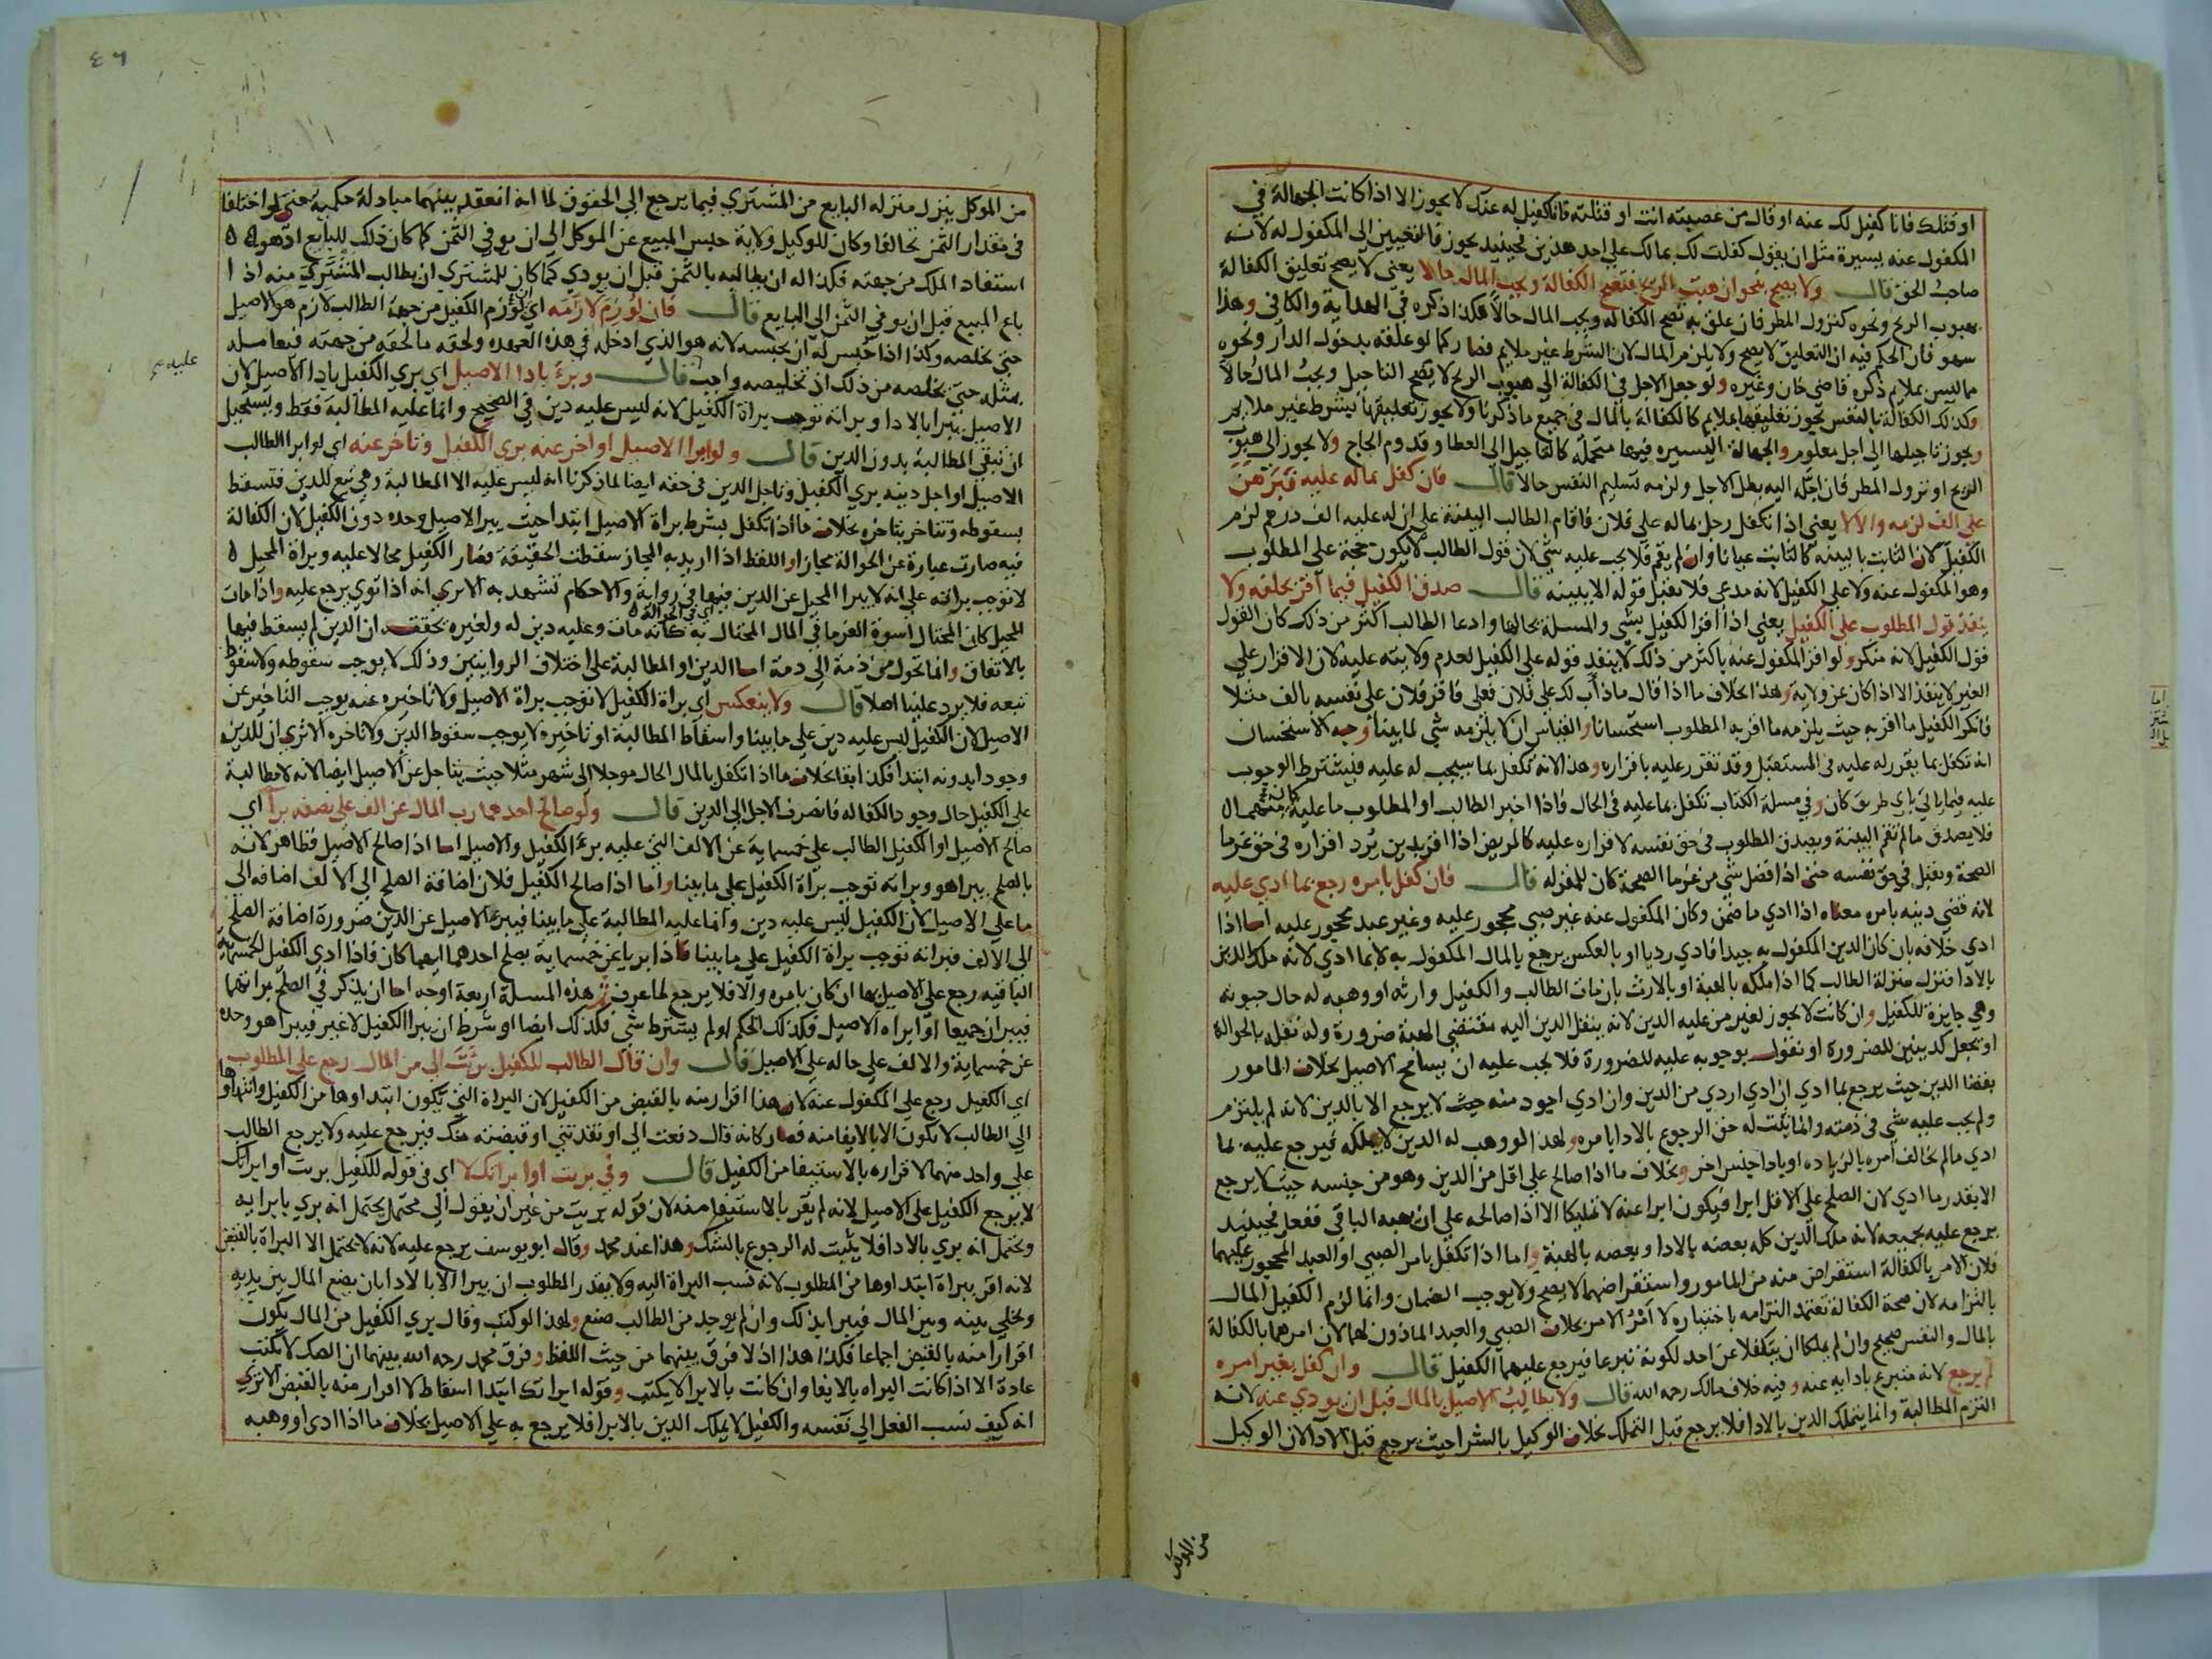 او قتلك فانا كفيل لك عنه او قال من غصبته انت او قتلته فانا كفيل له عنك لا يجوز الا اذا كانت الجهالة في
المكفول عنه يسيرة مثل ان يقول كفلت لك بمالك على احد هذين فحينيد يجوز فالتعيين الى المكفول له لانه
صاحب الحق قال ولا يصح بنحو ان هبت الريح فتصح الكفالة ويجب المال حالا يعني لا يصح تعليق الكفالة
بهبوب الريح ونحوه كنزول المطر فان علق به تصح الكفاله ويجب المال حالا هكذا ذكره في الهداية والكافي وهذا
سهو فان الحكم فيه ان التعليق لا يصح ولا يلزم المال لان الشرط غير ملايم فصار كما لو علقه بدخول الدار ونحوه
مما ليس بملايم ذكره قاضي خان وغيره ولو جعل الاجل في الكفالة الى هبوب الريح لا يصح التاجيل ويجب المال حالا
وكذلك الكفالة بالنفس يجوز تعليقها بملايم كالكفالة بالمال في جميع ما ذكرنا ولا يجوز تعليقها بشرط غير ملايم
ويجوز تاجيلها الى اجل معلوم والجهالة اليسيره فيها متحملة كالتاجيل الى العطا وقدوم الحاج ولا يجوز الى هبوب
الريح او نزول المطر فان اجله اليه بطل الاجل ولزمه تسليم النفس حالا قال فان كفل بماله عليه فبرهن
على الف لزمه والا لا يعني اذا تكفل رجل بماله على فلان فاقام الطالب البينة على ان له عليه الف درهم لزم
الكفيل لان الثابت بالبينه كالثابت عيانا وان لم يقم فلا يجب عليه شي لان قول الطالب لا يكون حجة على المطلوب
وهو المكفول عنه ولا على الكفيل لانه مدعى فلا تقبل قوله الا ببينه قال صدق الكفيل فيما اقر بحلفه ولا
ينفذ قول المطلوب على الكفيل يعني اذا اقر الكفيل بشي والمسلة بحالها وادعا الطالب اكثر من ذلك كان القول
قول الكفيل لانه منكر ولو اقر المكفول عنه باكثر من ذلك لا ينفذ قوله على الكفيل لعدم ولايته عليه لان الاقرار على
الغير لا ينفذ الا اذا كان عن ولاية وهذا بخلاف ما اذا قال ما ذاب لك على فلان فعلي فاقر فلان على نفسه بالف مثلا
فانكر الكفيل ما اقر به حيث يلزمه ما اقر به المطلوب استحسانا والقياس ان لا يلزمه شي لما بينا وجه الاستحسان
انه تكفل بما يتقرر له عليه في المستقبل وقد تقرر عليه باقراره وهذا لانه تكفل بما سيجب له عليه فيشترط الوجوب
عليه فيما ياتي باي طريق كان وفي مسلة الكتاب تكفل بما عليه في الحال فاذا اخبر الطالب او المطلوب ما عليه
فلا يصدق ما لم تقم البينة ويصدق المطلوب في حق نفسه لاقراره عليه كالمريض اذا اقر بدين يرد اقراره في حق غرما
الصحة وتقبل في حق نفسه حتى اذا فضل شي من غرما الصحة كان للمقر له قال فان كفل بامره رجع بما ادي عليه
لانه قضي دينه بامره معناه اذا ادي ما ضمن وكان المكفول عنه غير صبي محجور عليه وغير عبد محجور عليه اما اذا
ادي خلافه بان كان الدين المكفول به جيدا فادي رديا او بالعكس يرجع بالمال المكفول به لا بما ادي لانه ملك الدين
بالادا فنزل منزلة الطالب كما اذا ملكه بالهبة او بالارث بان مات الطالب والكفيل وارثه او وهبه له حال حيوته
وهي جايزة للكفيل وان كانت لا يجوز لغير من عليه الدين لانه ينقل الدين اليه مقتضي الهبة ضرورة وله نقله بالحوالة
او تجعل كدينين للضرورة او نقول بوجوبه عليه للضرورة فلا يجب عليه ان يسامح الاصيل بخلاف المامور
بقضا الدين حيث يرجع بما ادي ان ادي اردي من الدين وان ادي اجود منه حيث لا يرجع الا بالدين لانه لم يلتزم
ولم يجب عليه شي في ذمته وانما يثبت له حق الرجوع بالادا بامره ولهذا لو وهب له الدين لا يملكه فيرجع عليه بما
ادي ما لم يخالف امره بالزياده او بادا جنس اخر وبخلاف ما اذا صالح على اقل من الدين وهو من جنسه حيث لا يرجع
الا بقدر ما ادي لان الصلح على الاقل ابرا فيكون ابرا عنه لا تمليكا الا اذا صالحه على ان يهبه الباقي ففعل فحينيد
يرجع عليه بجميعه لانه ملك الدين كله بعضه بالادا وبعضه بالهبة واما اذا تكفل بامر الصبي او العبد المحجور عليهما
فلان الامر بالكفالة استقراض منه من المامور واستقراضهما لا يصح ولا يوجب الضمان وانما لزم الكفيل المال
بالتزامه لان صحة الكفالة تعتمد التزامه باختياره لا امر الامر بخلاف الصبي والعبد الماذون لهما لان امرهما بالكفالة
بالمال والنفس صحيح وان لم يملكا ان يتكفلا عن احد لكونه تبرعا فيرجع عليهما الكفيل قال وان كفل بغير امره
لم يرجع لانه متبرع بادايه عنه وفيه خلاف مالك رحمه الله قال ولا يطالب الاصيل بالمال قبل ان يودي عنه لانه
التزم المطالبة وانما يتملك الدين بالادا فلا يرجع قبل التملك بخلاف الوكيل بالشرا حيث يرجع قبل الادا لان الوكيل
من الموكل
٤٦
من الموكل ينزل منزله البايع من المشتري فيما يرجع الى الحقوق لما انه انعقد بينهما مبادلة حكمية حتى لو اختلفا
في مقدار الثمن تحالفا وكان للوكيل ولاية حبس المبيع عن الموكل الى ان يوفي الثمن كما كان ذلك للبايع اذ هو
استفاد الملك من جهته فكذا له ان يطالبه بالثمن قبل ان يودي كما كان للمشتري ان يطالب المشتري منه اذا
باع المبيع قبل ان يوفي الثمن الى البايع قال فان لوزم لازمه اي ان لوزم الكفيل من جهة الطالب لازم هو الاصيل
حتى يخلصه وكذا اذا حبس له ان يحبسه لانه هو الذي ادخله في هذه العهده ولحقه ما لحقه من جهته فيعامله
بمثله حتى يخلصه من ذلك اذ تخليصه واجب قال وبرئ بادا الاصيل اي بري الكفيل بادا الاصيل لان
عليه
الاصيل يبرا بالادا وبرانه توجب براة الكفيل لانه ليس عليه دين في الصحيح وانما عليه المطالبة فقط ويستحيل
ان تبقى المطالبة بدون الدين قال ولو ابرا الاصيل او اخر عنه بري الكفيل وتاخر عنه اي لو ابرا الطالب
الاصيل او اجل دينه بري الكفيل وتاجل الدين في حقه ايضا لما ذكرنا انه ليس عليه الا المطالبة وهي تبع للدين فتسقط
بسقوطه وتتاخر بتاخره بخلاف ما اذا تكفل بشرط براة الاصيل ابتدا حيث يبرا الاصيل وحده دون الكفيل لان الكفالة
فيه صارت عبارة عن الحوالة مجازا واللفظ اذا اريد به المجاز سقطت الحقيقة فصار الكفيل محالا عليه وبراة المحيل
لا توجب براته على انه لا يبرا المحيل عن الدين فيها في رواية والاحكام تشهد به الا يري انه اذا توي يرجع عليه واذا مات
المحيل كان المحتال اسوة الغرما في المال المحتال به كانه مات وعليه دين له ولغيره تحقق ان الدين لم يسقط فيها
اي في الحوالة
بالاتفاق وانما تحول من ذمة الى ذمة اما الدين او المطالبة على اختلاف الروايتين وذلك لا يوجب سقوطه ولا سقوط
تبعه فلا يرد علينا اصلا قال ولا ينعكس اي براة الكفيل لا توجب براة الاصيل ولا تاخيره عنه يوجب التاخير عن
الاصيل لان الكفيل ليس عليه دين على ما بينا واسقاط المطالبة او تاخيره لا يوجب سقوط الدين ولا تاخره الا تري ان للدين
وجودا بدونه ابتدا فكذا بقا بخلاف ما اذا تكفل بالمال الحال موجلا الى شهر مثلا حيث يتاجل عن الاصيل ايضا لانه لا مطالبة
على الكفيل حال وجود الكفاله فانصرف الاجل الى الدين قال ولو صالح احدهما رب المال عن الف على نصفه برا اي
صالح الاصيل او الكفيل الطالب على خمسماية عن الالف التي عليه برئ الكفيل والاصيل اما اذا صالح الاصيل فظاهر لانه
بالصلح يبرا هو وبراته توجب براة الكفيل على ما بينا واما اذا صالح الكفيل فلان اضافة الصلح الى الالف اضافه الى
ما على الاصيل لان الكفيل ليس عليه دين وانما عليه المطالبة على ما بينا فيبرا الاصيل عن الدين ضرورة اضافة الصلح
الى الالف فبراته توجب براة الكفيل على ما بينا فاذا بريا عن خمسماية بصلح احدهما ايهما كان فاذا ادي الكفيل الخمسماية
الباقيه رجع على الاصيل بها ان كان بامره والا فلا يرجع لما عرف ثم هذه المسلة اربعة اوجه اما ان يذكر في الصلح براتهما
فيبران جميعا او ابراه الاصيل فكذلك الحكم او لم يشترط شي فكذلك ايضا او شرط ان يبرا الكفيل لا غير فيبرا هو وحده
عن خمسماية والالف على حاله على الاصيل قال وان قال الطالب للكفيل برئت الي من المال رجع على المطلوب
اي الكفيل رجع على المكفول عنه لان هذا اقرار منه بالقبض من الكفيل لان البراة التي يكون ابتداوها من الكفيل وانتهاوها
الى الطالب لا تكون الا بالايفا منه فصار كانه قال دفعت الى او نقدتني او قبضته منك فيرجع عليه ولا يرجع الطالب
على واحد منهما لاقراره بالاستيفا من الكفيل قال وفي بريت او ابراتك لا اي في قوله للكفيل بريت او ابراتك
لا يرجع الكفيل على الاصيل لانه لم يقر بالاستيفا منه لان قوله بريت من غير ان يقول الي محتمل يحتمل انه بري بابرايه
ويحتمل انه بري بالادا فلا يثبت له الرجوع بالشك وهذا عند محمد وقال ابو يوسف يرجع عليه لانه لا يحتمل الا البراة بالقبض
لانه اقر ببراة ابتداوها من المطلوب لانه نسب البراة اليه ولا يقدر المطلوب ان يبرا الا بالادا بان يضع المال بين يديه
ويخلي بينه وبين المال فيبرا بذلك وان لم يوجد من الطالب صنع ولهذا لو كتب وقال بري الكفيل من المال يكون
اقرارا منه بالقبض اجماعا فكذا هذا اذ لا فرق بينهما من حيث اللفظ وفرق محمد رحمه الله بينهما ان الصك لا يكتب
عادة الا اذا كانت البراه بالايفا وان كانت بالابرا لا يكتب وقوله ابراتك ابتدا اسقاط لا اقرار منه بالقبض الا تري
انه كيف نسب الفعل الى نفسه والكفيل لا يملك الدين بالابرا فلا يرجع به على الاصيل بخلاف ما اذا ادي او وهبه